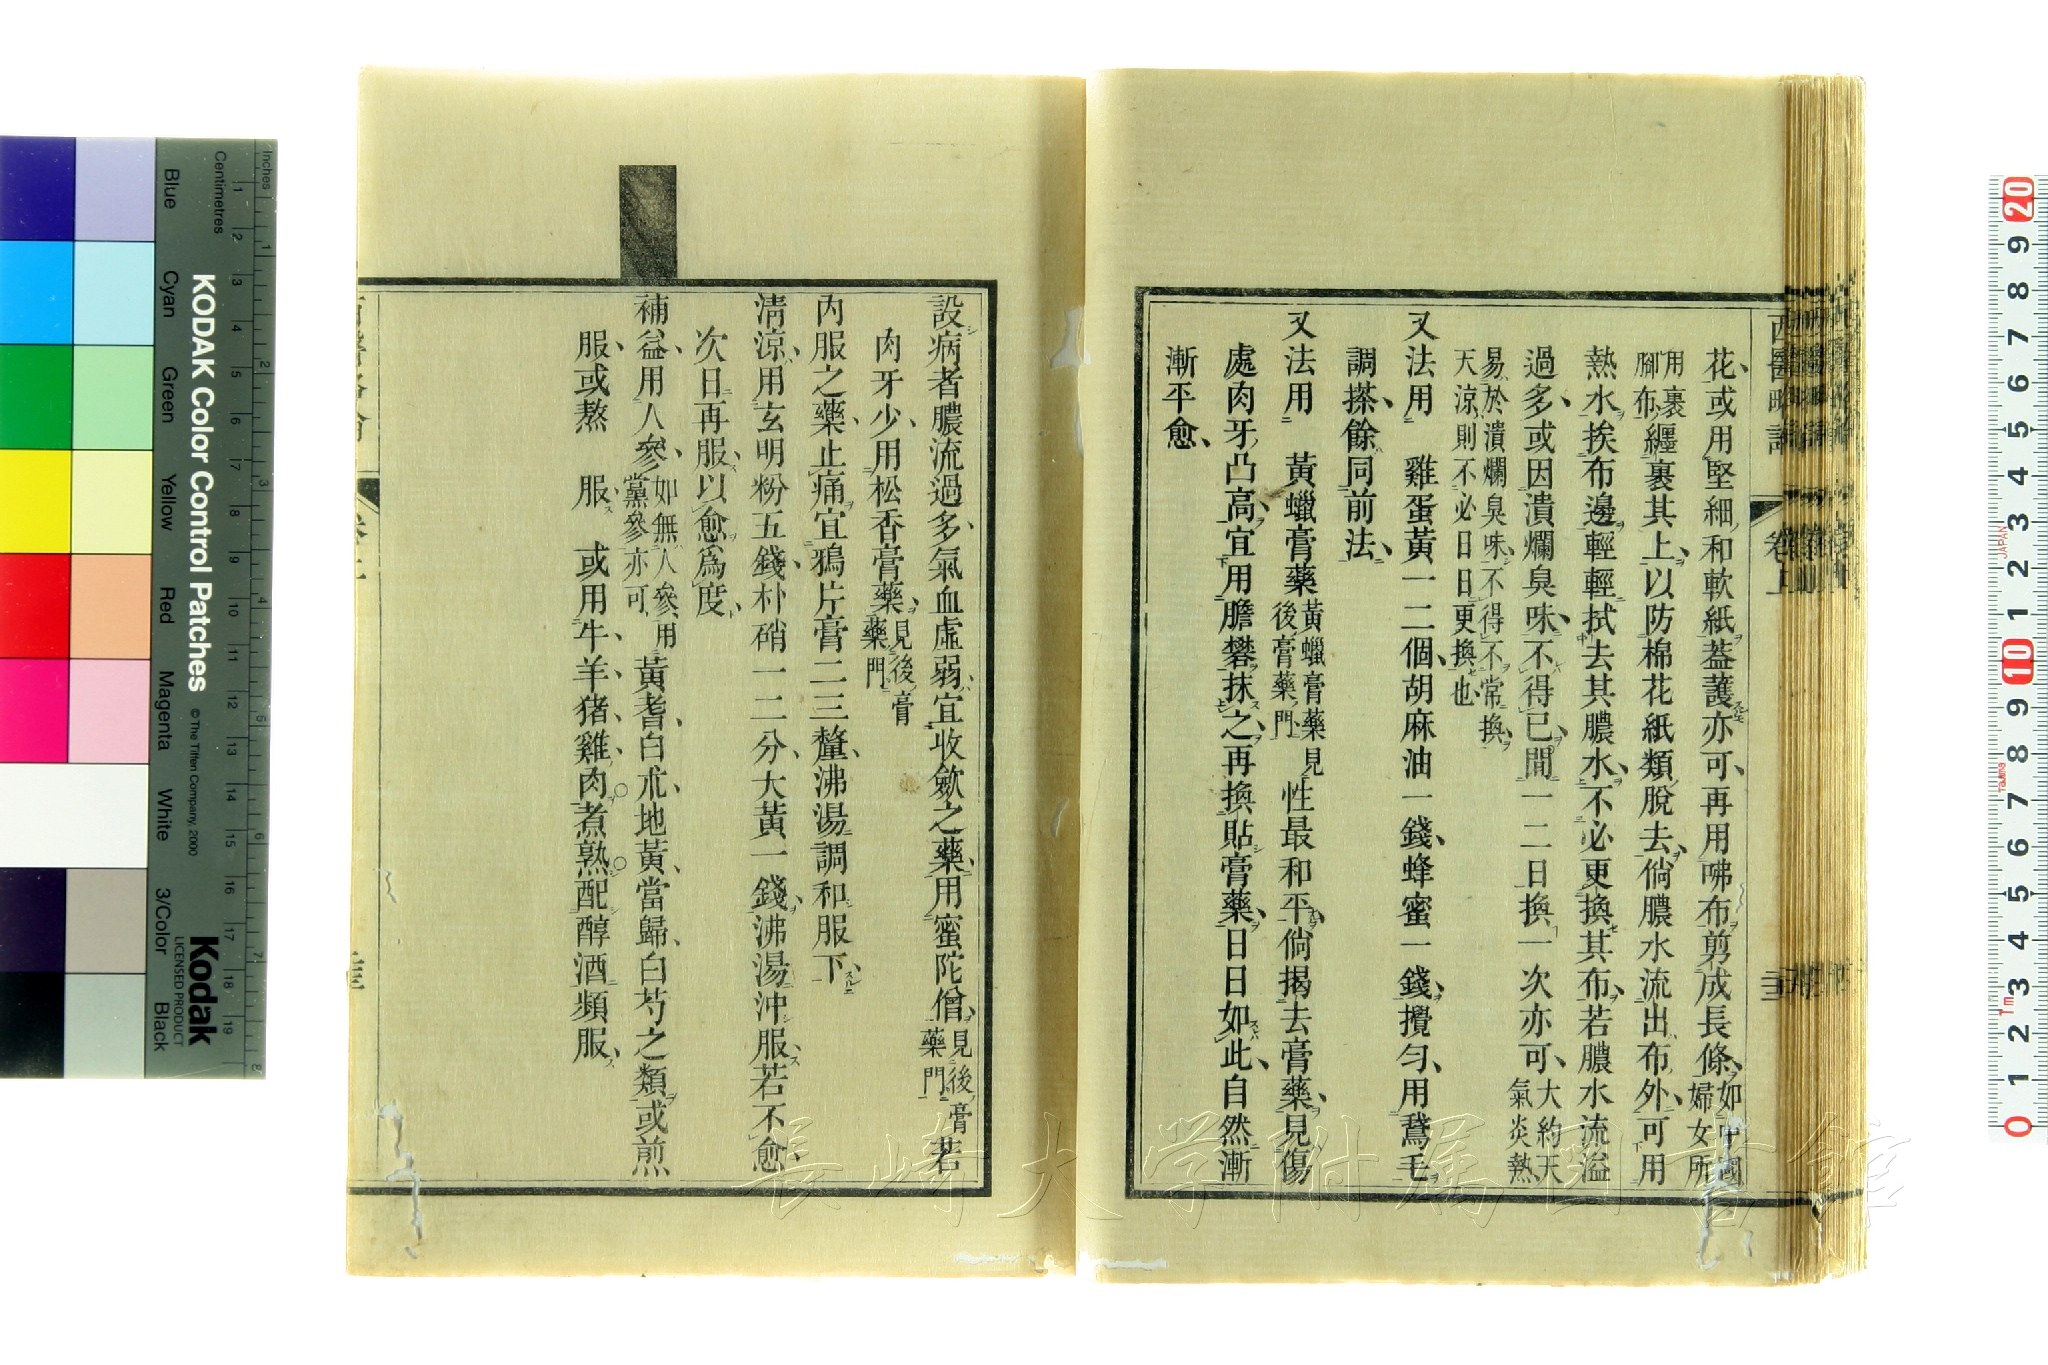 花或用堅細和軟紙蓋護亦可再用咈布剪成長條如中國婦女所
用裹脚布纏裹其上以防棉花紙類脫去倘膿水流出布外可用
熱水挨布邊輕輕拭去其膿水不必更換其布若膿水流溢
過多或因潰爛臭味不得已間一二日換一次亦可大約天氣炎熱
易於潰爛臭味不得不常換天涼則不必日日更換也
又法用 雞蛋黃一二個胡麻油一錢蜂蜜一錢攪勻用鵞毛
調搽餘同前法
又法用 黃蠟膏藥黃蠟膏藥見後膏藥門性最和平倘揭去膏藥見傷
處肉牙凸高宜用膽礬抹之再換貼膏藥日日如此自然漸
漸平愈
設病者膿流過多氣血虛弱宜收斂之藥用蜜陀僧見後膏藥門若
肉牙少用松香膏藥見後膏藥門
內服之藥止痛宜鴉片膏二三釐沸湯調和服下
清涼用玄明粉五錢朴硝一二分大黃一錢沸湯沖服若不愈
次日再服以愈爲度
補益用人參如無人參用黨參亦可黃耆白朮地黃當歸白芍之類或煎
服或熬 服 或用牛羊猪雞肉煮熟配醇酒頻服
西醫略論
卷上
Inches
Centimetres
Blue
Cyan
Green
Yellow
Red
Magenta
White
3/Color
Black
KODAK Color Control Patches
© The Tiffen Company, 2000
Kodak
LICENSED PRODUCT
1 2 3 4 5 6 7 8 9 10 11 12 13 14 15 16 17 18 19
20 9 8 7 6 5 4 3 2 1 10 9 8 7 6 5 4 3 2 1 0
JAPAN
長崎大学附属図書館